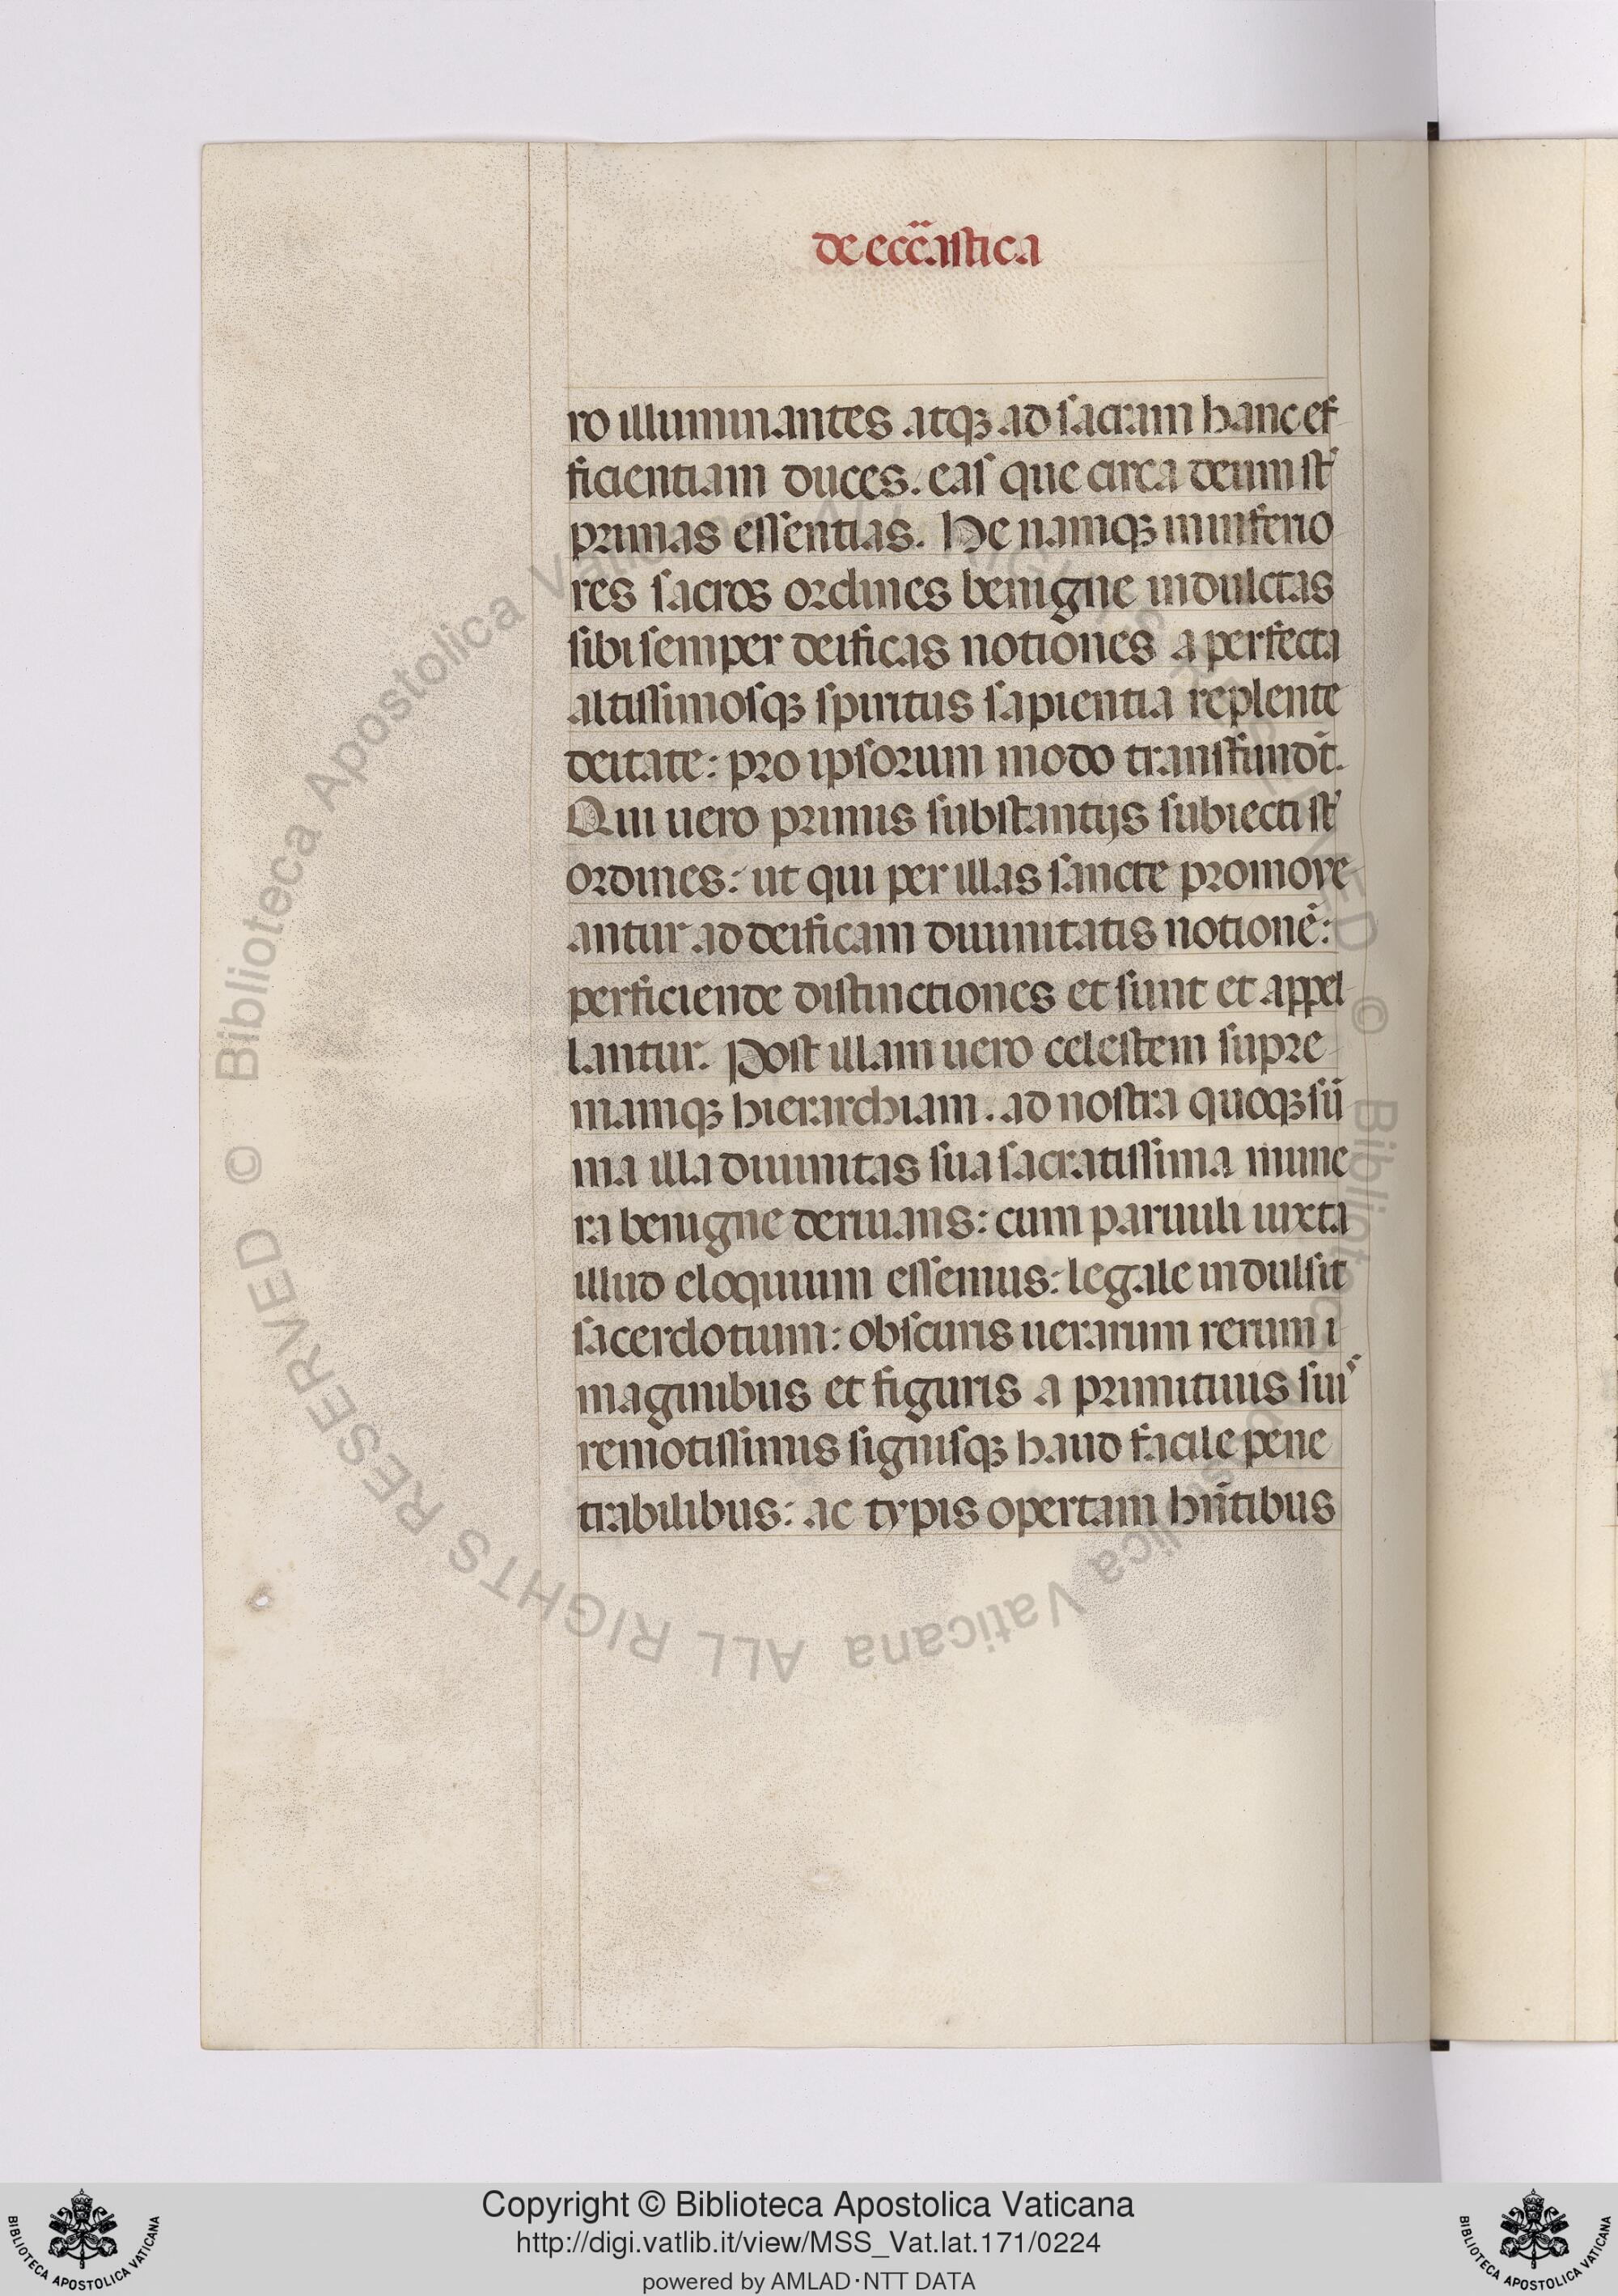 de ecc̈astica
ro illuminantes atqꝫ ad sacram hanc ef-
ficientiam duces. eas que circa deum st̄
primas essentias. He namqꝫ in inferio
res sacros ordines benigne indultas
sibi semper deificas notiones a perfecta
altissimosqꝫ spiritus sapientia replente
deitate: pro ipsorum modo transfundūt.
Qui uero primis substantijs subiecti st̄
ordines: ut qui per illas sancte promove-
antur ad deificam diuinitatis notionē:
perficiende distinctiones et sunt et appel-
lantur. Post illam uero celestem supre-
mamqꝫ hierarchiam. ad nostra quoqꝫ sū
ma illa diuinitas sua sacratissima mune
ra benigne deriuans: cum paruuli iuxta
illud eloquium essemus: legale indulsit
sacerdotium: obscuris uerarum rerum i-
maginibus et figuris a primitiuis suis
remotissimis signisqꝫ haud facile pene
trabilibus: ac typis opertam hn̄tibus
© Biblioteca Apostolica Vaticana ALL RIGHTS RESERVED © Biblioteca Apostolica Vaticana ALL RIGHTS RESERVED
Copyright © Biblioteca Apostolica Vaticana
http://digi.vatlib.it/view/MSS_Vat.lat.171/0224
powered by AMLAD·NTT DATA
BIBLIOTECA APOSTOLICA VATICANA
BIBLIOTECA APOSTOLICA VATICANA